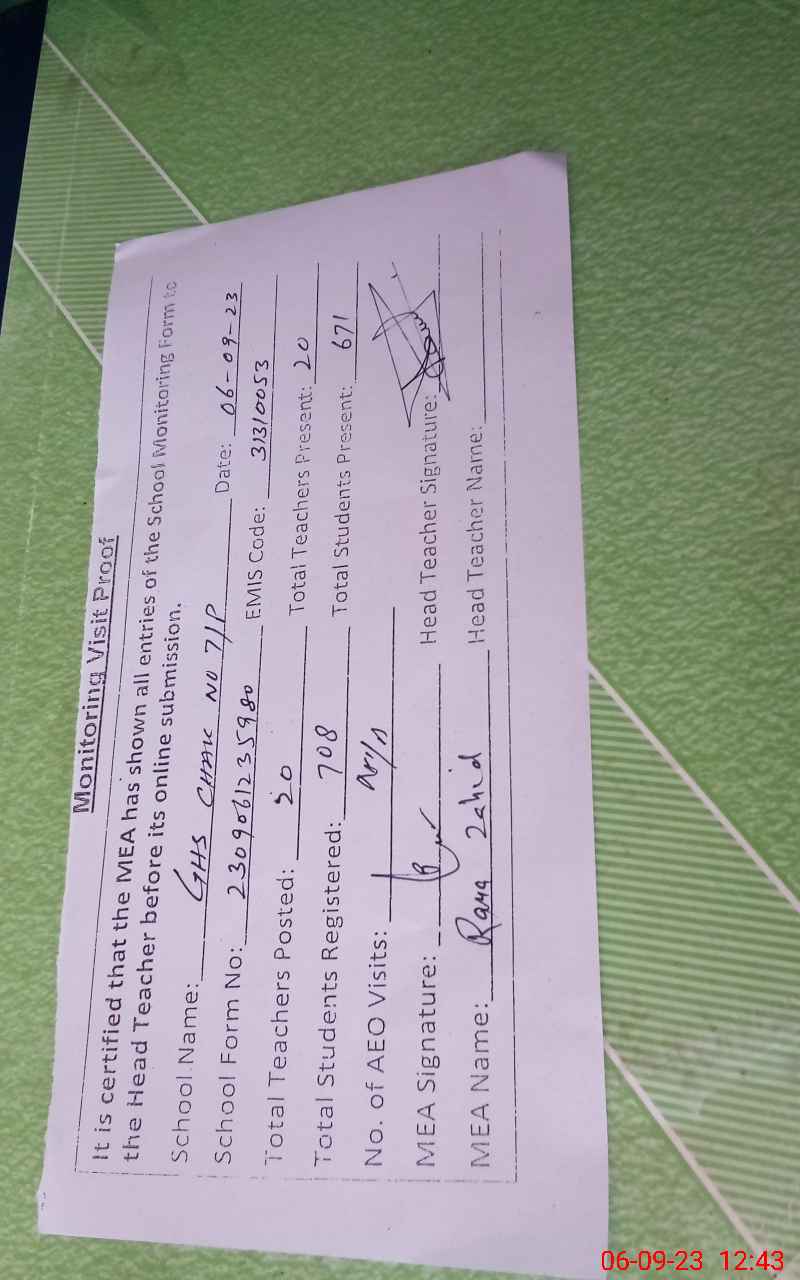 Monitoring Visit Proof
It is certified that the MEA has shown all entries of the School Monitoring Form to
the Head Teacher before its online submission.
School Name: GHS CHAK NO 7/P Date: 06-09-23
School Form No: 2309061235980 EMIS Code: 31310053
Total Teachers Posted: 20 Total Teachers Present: 20
Total Students Registered: 708 Total Students Present: 671
No. of AEO Visits:
MEA Signature: Head Teacher Signature:
MEA Name: Rana Zahid Head Teacher Name:
06-09-23 12:43